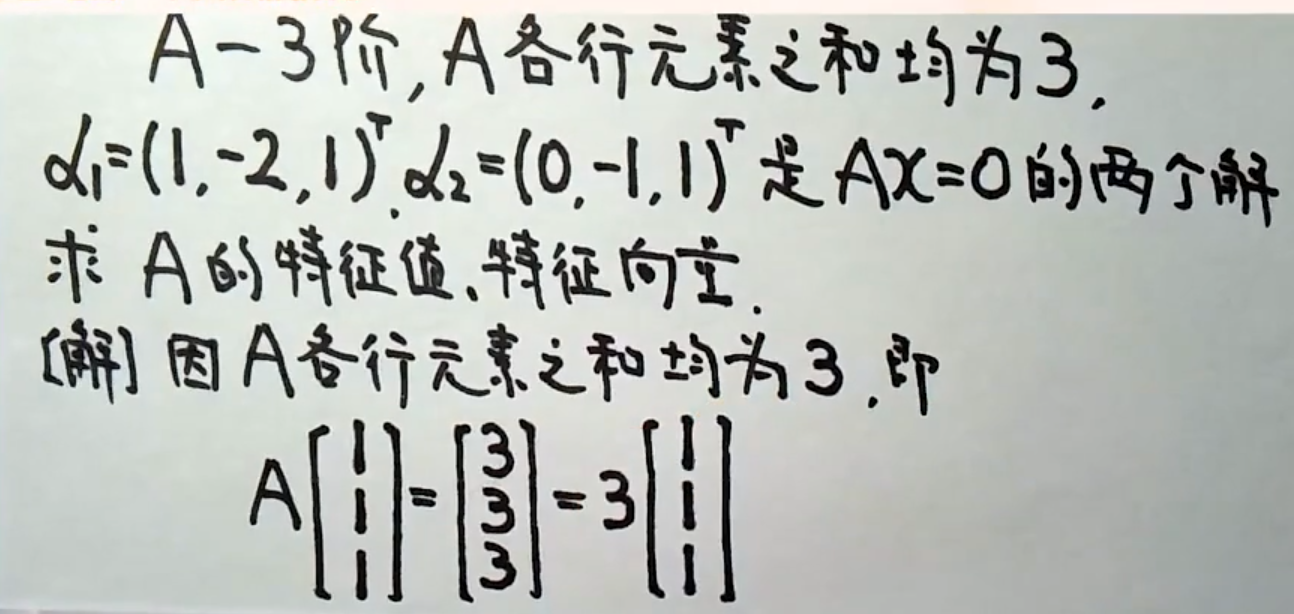 A-3阶,A各行元素之和均为3.
α₁=(1,-2,1)ᵀ,α₂=(0,-1,1)ᵀ是Ax=0的两个解
求A的特征值、特征向量.
[解]因A各行元素之和均为3.即
A[1 1 1]=[3 3 3]=3[1 1 1]